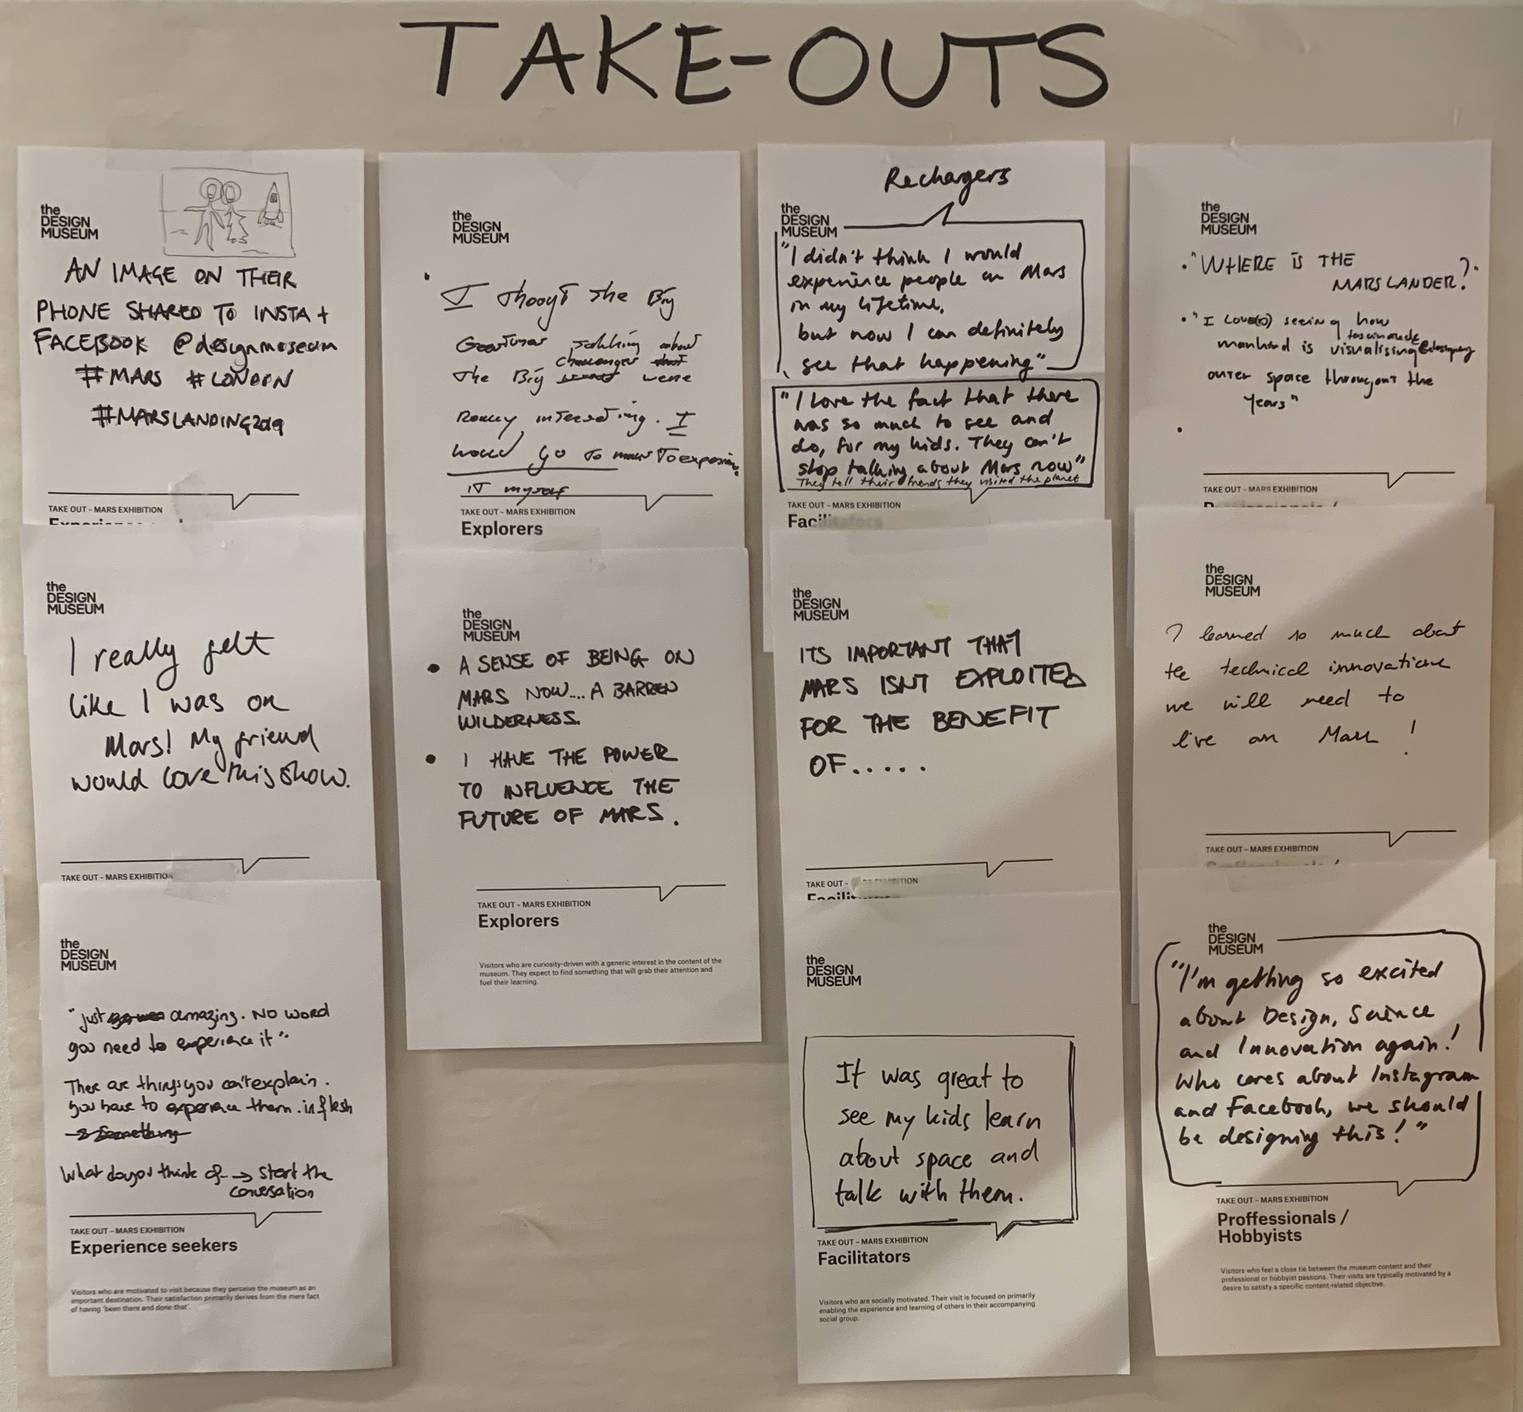 TAKE-OUTS
the
DESIGN
MUSEUM
AN IMAGE ON THEIR
PHONE SHARED TO INSTA +
FACEBOOK @designmuseum
#MARS #LONDON
#MARSLANDING2019
TAKE OUT – MARS EXHIBITION
the
DESIGN
MUSEUM
I really felt
like I was on
Mars! My friend
would love this show.
TAKE OUT – MARS EXHIBITION
the
DESIGN
MUSEUM
"just amazing. NO WORD
you need to experience it".
There are things you can't explain.
you have to experience them. in flesh
Something
What do you think of → start the
conversation
TAKE OUT – MARS EXHIBITION
Experience seekers
Visitors who are motivated to visit because they perceive the museum as an
important destination. Their satisfaction primarily derives from the mere fact
of having 'been there and done that'.
the
DESIGN
MUSEUM
I thoogt the Big
talking about
the Big challenges were
interesting. I
would go to
it myself
TAKE OUT – MARS EXHIBITION
Explorers
the
DESIGN
MUSEUM
• A SENSE OF BEING ON
MARS NOW... A BARREN
WILDERNESS.
• I HAVE THE POWER
TO INFLUENCE THE
FUTURE OF MARS.
TAKE OUT – MARS EXHIBITION
Explorers
Visitors who are curiosity-driven with a generic interest in the content of the
museum. They expect to find something that will grab their attention and
fuel their learning.
Rechagers
the
DESIGN
MUSEUM
"I didn't think I would
experience people on Mars
in my lifetime,
but now I can definitely
see that happening"
"I love the fact that there
was so much to see and
do, for my kids. They can't
stop talking about Mars now"
They tell their friends they visited the planet
TAKE OUT – MARS EXHIBITION
Facilitators
the
DESIGN
MUSEUM
ITS IMPORTANT THAT
MARS ISNT EXPLOITED
FOR THE BENEFIT
OF.....
TAKE OUT – MARS EXHIBITION
the
DESIGN
MUSEUM
It was great to
see my kids learn
about space and
talk with them.
TAKE OUT – MARS EXHIBITION
Facilitators
Visitors who are socially motivated. Their visit is focused on primarily
enabling the experience and learning of others in their accompanying
social group.
the
DESIGN
MUSEUM
• "WHERE IS THE
MARS LANDER?"
• "I LOVE(D) seeing how
mankind is visualising
outer space throughout the
years"
TAKE OUT – MARS EXHIBITION
the
DESIGN
MUSEUM
I learned so much about
the technical innovations
we will need to
live on Mars!
TAKE OUT – MARS EXHIBITION
the
DESIGN
MUSEUM
"I'm getting so excited
about Design, Science
and Innovation again!
Who cares about Instagram
and Facebook, we should
be designing this!"
TAKE OUT – MARS EXHIBITION
Proffessionals /
Hobbyists
Visitors who feel a close tie between the museum content and their
professional or hobbyist passions. Their visits are typically motivated by a
desire to satisfy a specific content-related objective.